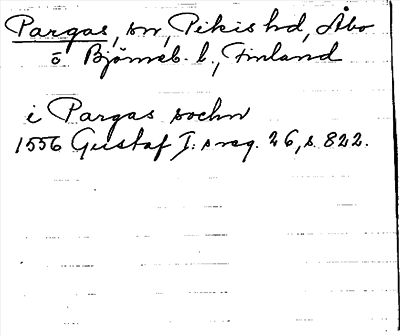 Pargas, sn, Pikis hd, Åbo
o Björneb. l., Finland
i Pargas sochn
1556 Gustaf I:s reg. 26, s. 822.